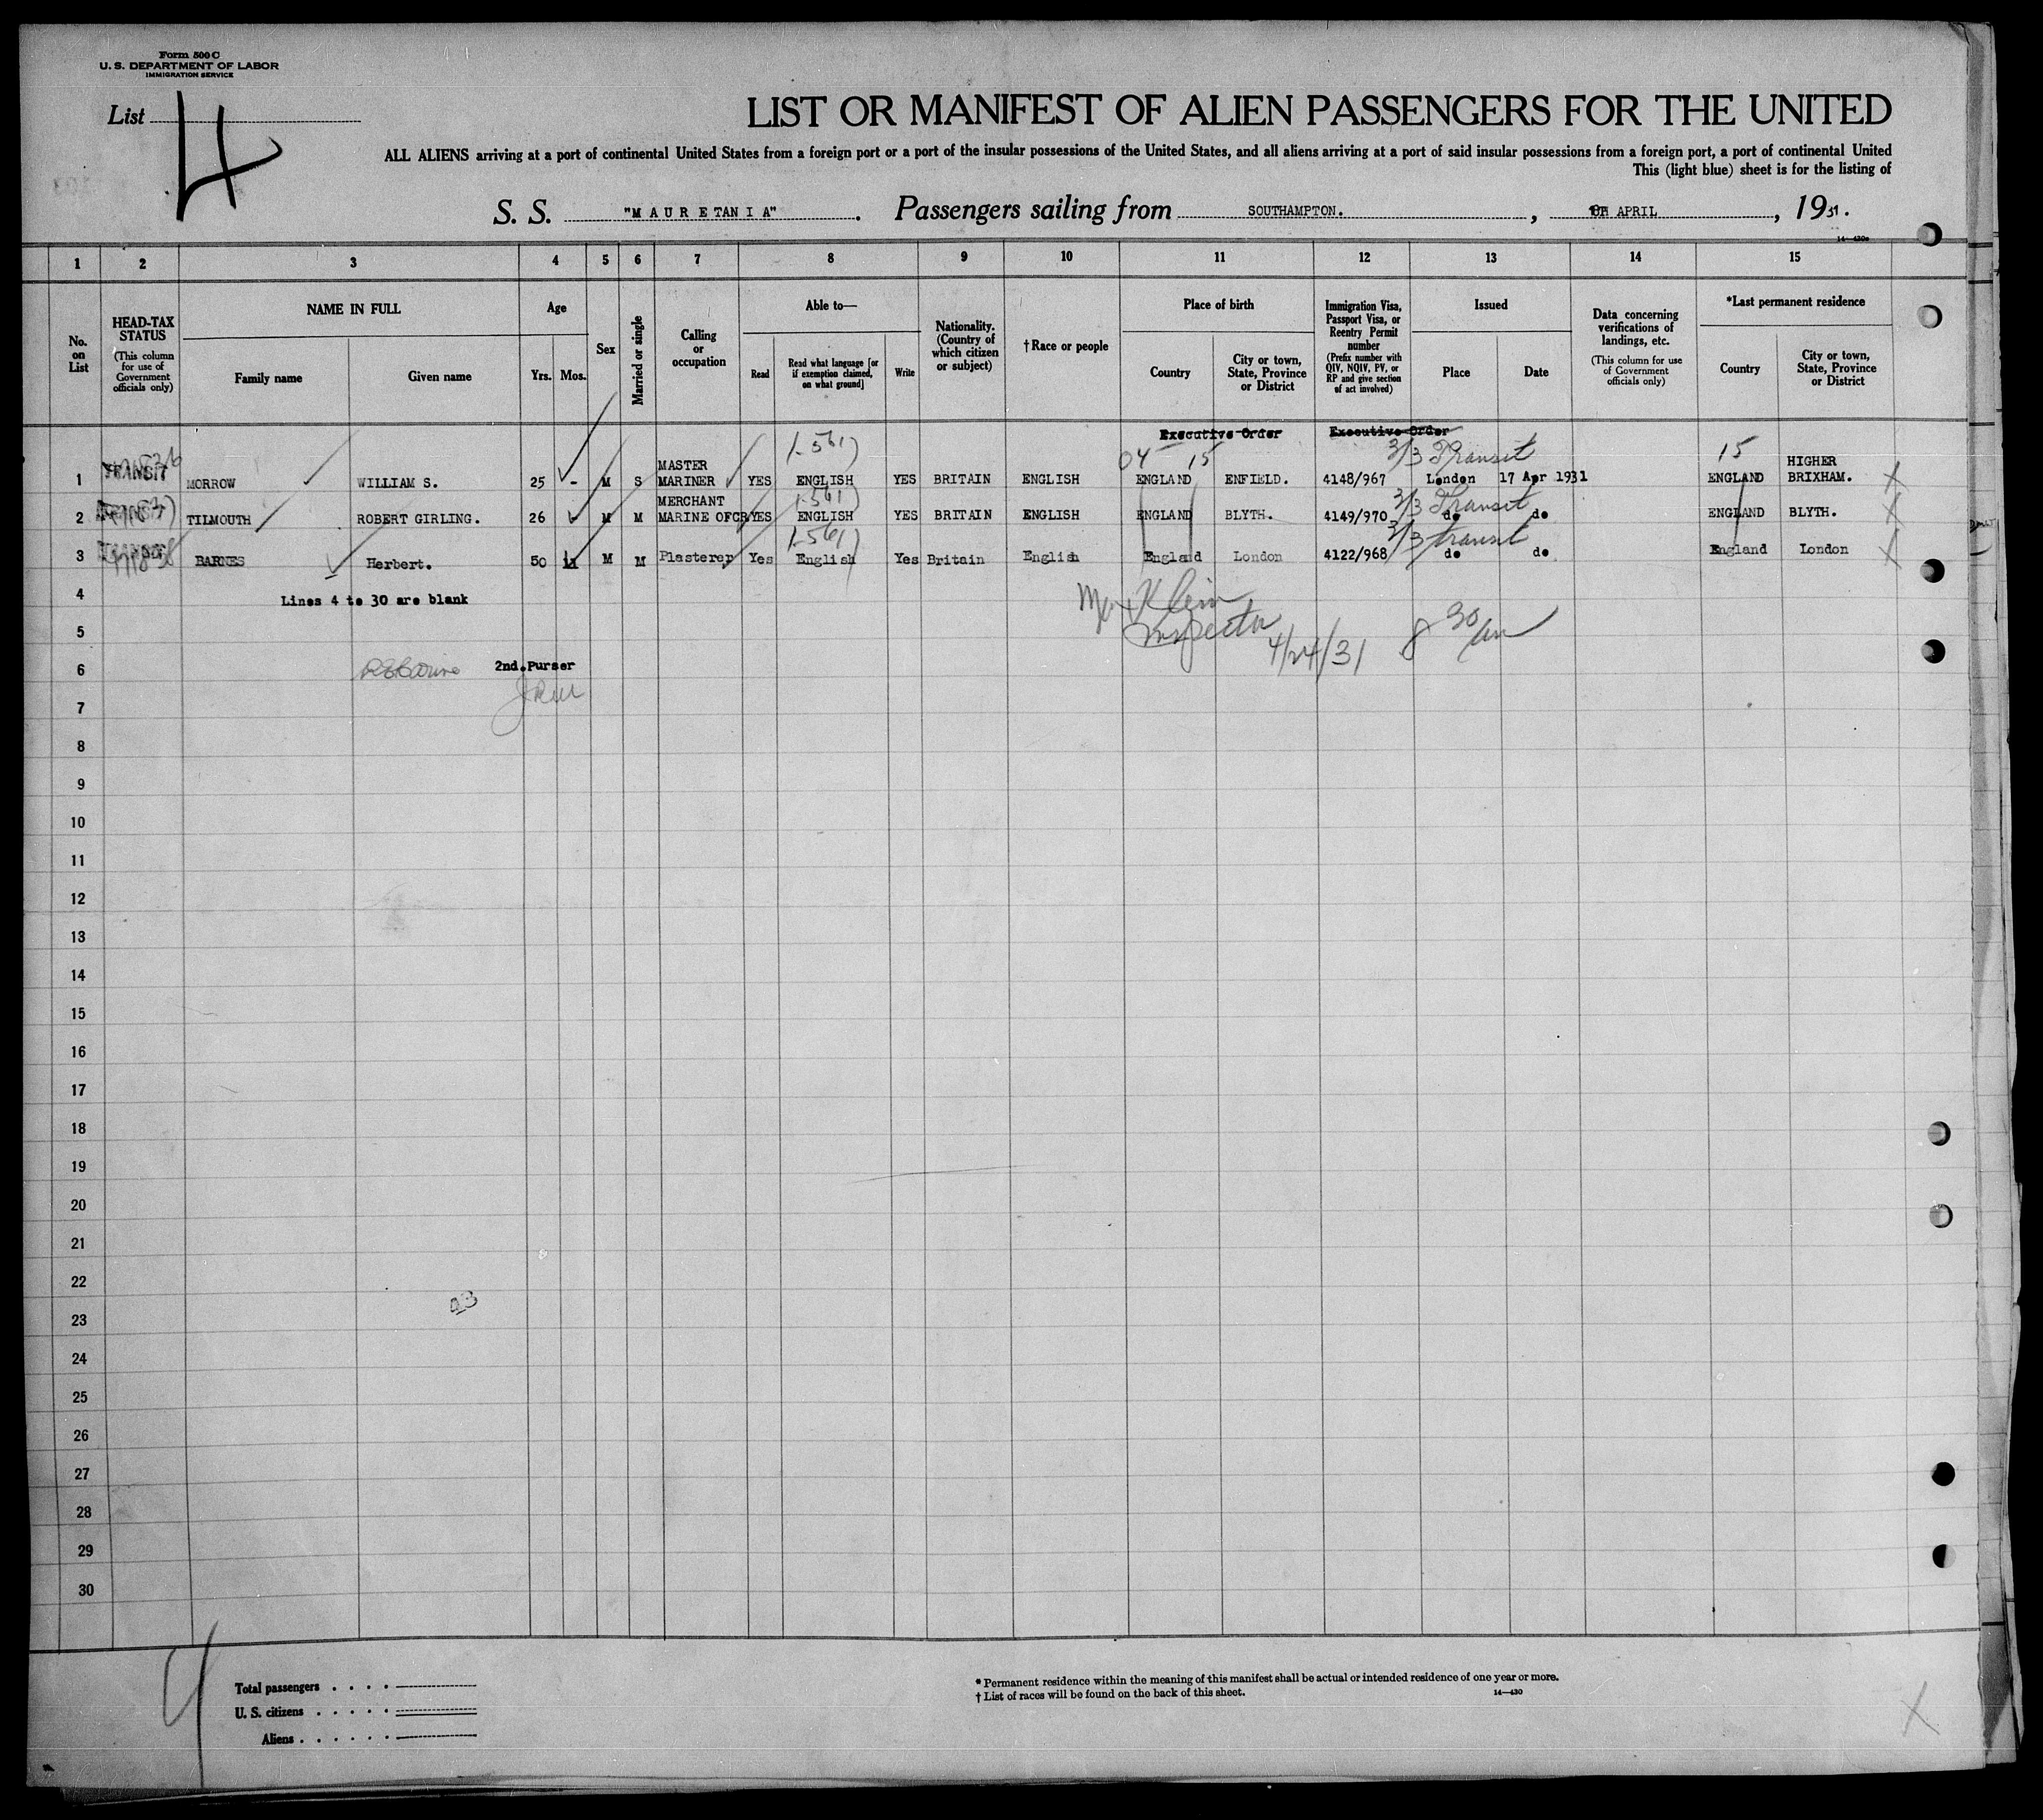 Form 500 C
U. S. DEPARTMENT OF LABOR
IMMIGRATION SERVICE
List 4
LIST OR MANIFEST OF ALIEN PASSENGERS FOR THE UNITED
ALL ALIENS arriving at a port of continental United States from a foreign port or a port of the insular possessions of the United States, and all aliens arriving at a port of said insular possessions from a foreign port, a port of continental United
This (light blue) sheet is for the listing of
S. S. "MAURETANIA". Passengers sailing from SOUTHAMPTON., APRIL, 1931.
14—430a
1 2 3 4 5 6 7 8 9 10 11 12 13 14 15
No. on List
HEAD-TAX STATUS
(This column for use of Government officials only)
NAME IN FULL
Family name
Given name
Age
Yrs. Mos.
Sex
Married or single
Calling or occupation
Able to—
Read
Read what language [or if exemption claimed, on what ground]
Write
Nationality. (Country of which citizen or subject)
†Race or people
Place of birth
Country
City or town, State, Province or District
Immigration Visa, Passport Visa, or Reentry Permit number
(Prefix number with QIV, NQIV, PV, or RP and give section of act involved)
Issued
Place
Date
Data concerning verifications of landings, etc.
(This column for use of Government officials only)
*Last permanent residence
Country
City or town, State, Province or District
Executive Order Executive Order
1-561) 04 15 3/3 Transit 15
1 TRANSIT MORROW WILLIAM S. 25 - M S MASTER MARINER YES ENGLISH YES BRITAIN ENGLISH ENGLAND ENFIELD. 4148/967 London 17 Apr 1931 ENGLAND HIGHER BRIXHAM. X
1-561) 3/3 Transit
2 TILMOUTH ROBERT GIRLING. 26 M M MERCHANT MARINE OFCR YES ENGLISH YES BRITAIN ENGLISH ENGLAND BLYTH. 4149/970 do do ENGLAND BLYTH. X
1-561) 3/3 transit
3 BARNES Herbert. 50 M M Plasterer Yes English Yes Britain English England London 4122/968 do do England London X
4 Lines 4 to 30 are blank
Klein
5 Inspector 4/24/31 8 30 am
6 2nd.Purser
7
8
9
10
11
12
13
14
15
16
17
18
19
20
21
22
23
24
25
26
27
28
29
30
Total passengers . . . .
U. S. citizens . . . . .
Aliens . . . . . .
* Permanent residence within the meaning of this manifest shall be actual or intended residence of one year or more.
† List of races will be found on the back of this sheet.
14—430
X